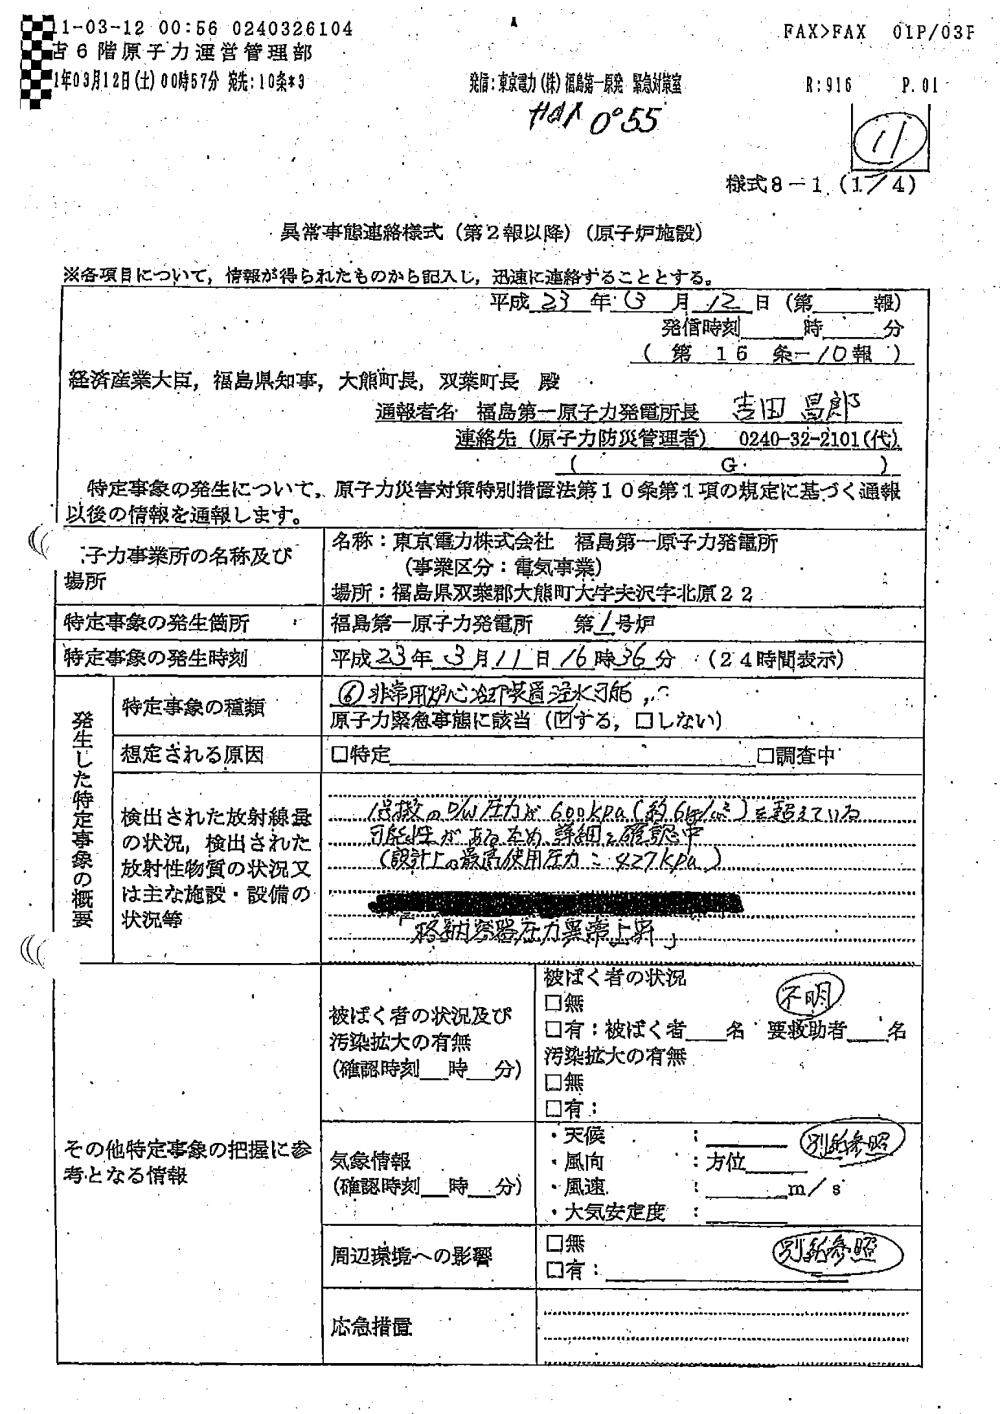 11-03-12 00:56 0240326104 FAX>FAX 01P/03P
吉6階原子力運営管理部
1年03月12日(土)00時57分 宛先:10条*3 発信:東京電力(株)福島第一原発 緊急対策室 R:916 P.01
0°55
11
様式8-1 (1/4)
異常事態連絡様式(第2報以降)(原子炉施設)
※各項目について,情報が得られたものから記入し,迅速に連絡することとする。
平成 23 年 03 月 12 日(第 報)
発信時刻 時 分
(第 16 条-10報)
経済産業大臣,福島県知事,大熊町長,双葉町長 殿
通報者名 福島第一原子力発電所長 吉田 昌郎
連絡先(原子力防災管理者) 0240-32-2101(代)
( G )
特定事象の発生について,原子力災害対策特別措置法第10条第1項の規定に基づく通報
以後の情報を通報します。
子力事業所の名称及び
場所
名称:東京電力株式会社 福島第一原子力発電所
(事業区分:電気事業)
場所:福島県双葉郡大熊町大字夫沢字北原22
特定事象の発生箇所 福島第一原子力発電所 第1号炉
特定事象の発生時刻 平成23年 3月11日16時36分 (24時間表示)
発生した特定事象の概要
特定事象の種類
⑥非常用炉心冷却装置注水不能
原子力緊急事態に該当(☑する,□しない)
想定される原因 □特定 □調査中
検出された放射線量
の状況,検出された
放射性物質の状況又
は主な施設・設備の
状況等
1号機のD/W圧力が600kPa(約6kg/cm²)を超えている
可能性があるため、詳細を確認中
(設計上の最高使用圧力:427kPa)
「格納容器圧力異常上昇」
その他特定事象の把握に参
考となる情報
被ばく者の状況及び
汚染拡大の有無
(確認時刻 時 分)
被ばく者の状況
□無 不明
□有:被ばく者 名 要救助者 名
汚染拡大の有無
□無
□有:
気象情報
(確認時刻 時 分)
・天候 : 別紙参照
・風向 :方位
・風速 : m/s
・大気安定度 :
周辺環境への影響
□無 別紙参照
□有:
応急措置